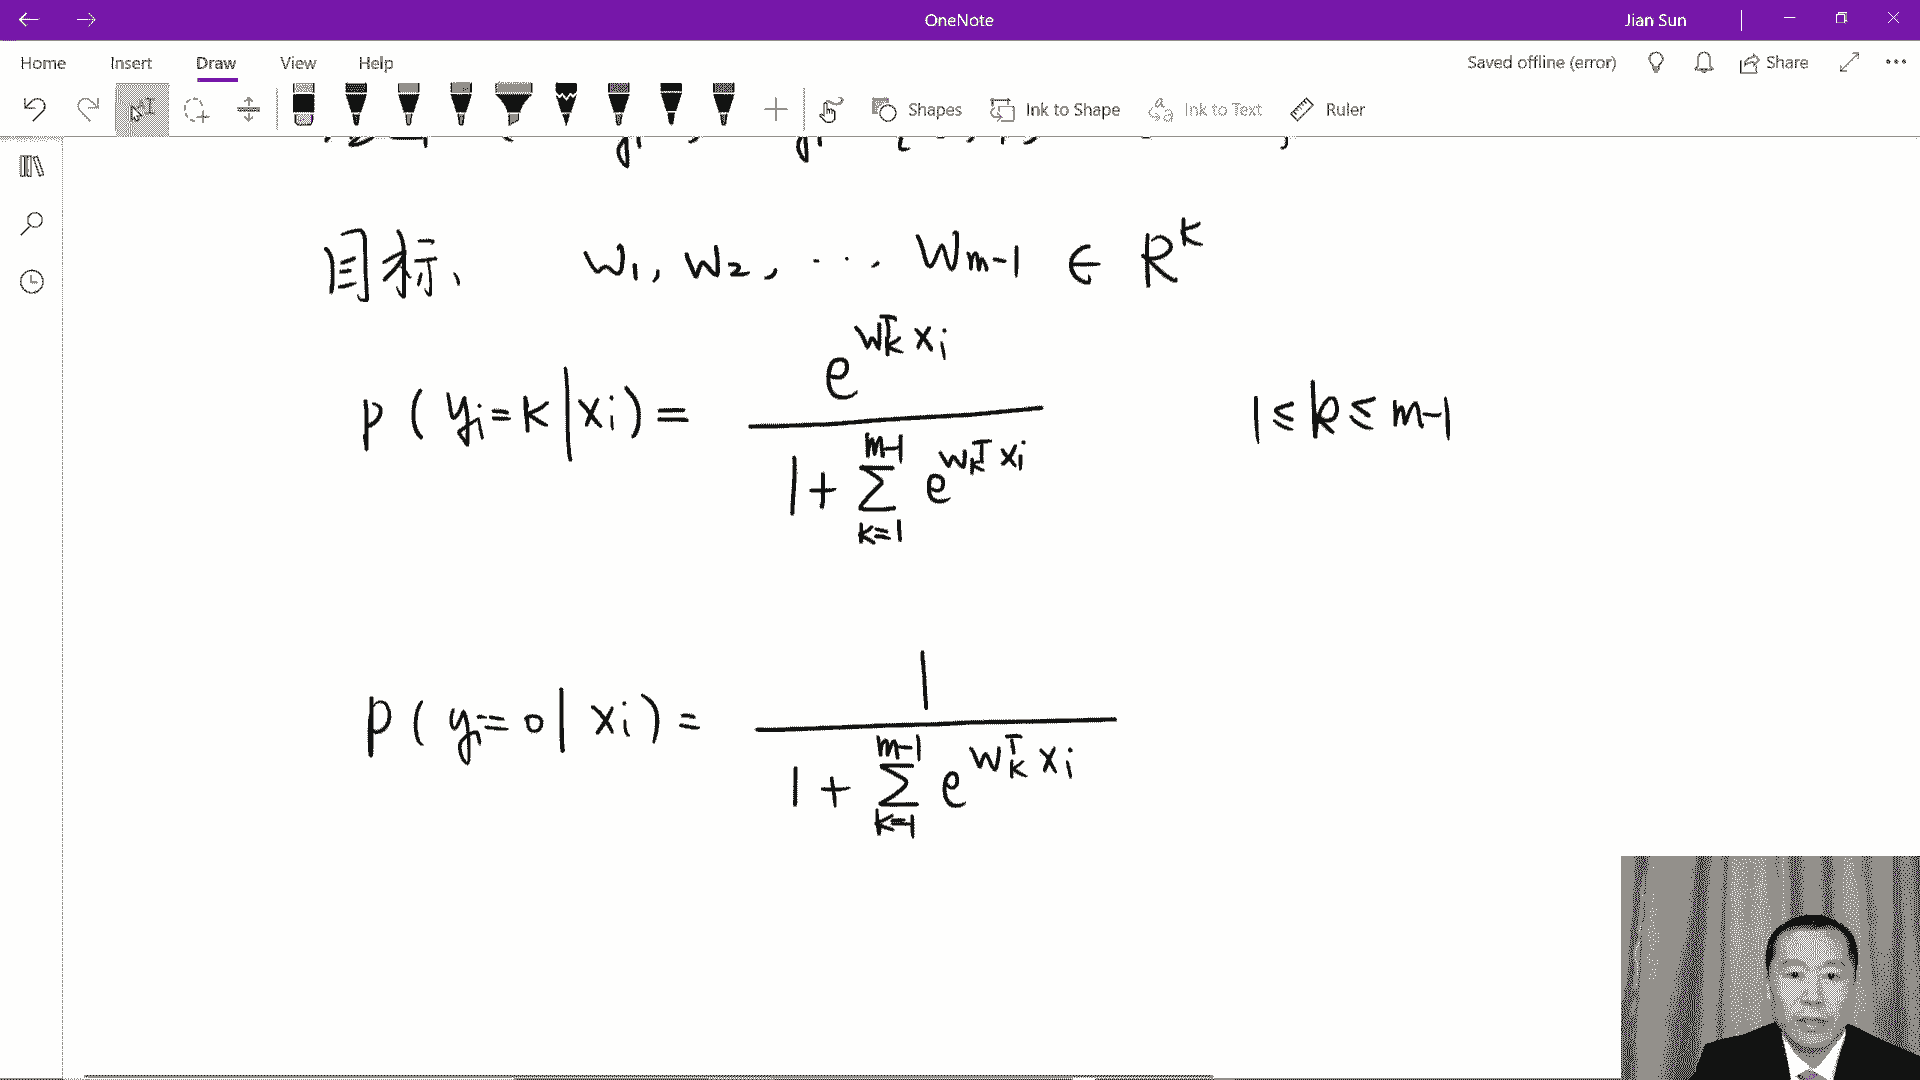 OneNote
Jian Sun
Home Insert Draw View Help
Saved offline (error)
Share
Shapes
Ink to Shape
Ink to Text
Ruler
目标、 w₁, w₂, ⋯. wₘ₋₁ ∈ Rᴷ
p ( yᵢ=K | xᵢ) = e^{w_k^T xᵢ} / (1+ ∑_{k=1}^{m-1} e^{w_k^T xᵢ}) 1≤k≤m-1
p ( yᵢ=0 | xᵢ) = 1 / (1+ ∑_{k=1}^{m-1} e^{w_k^T xᵢ})